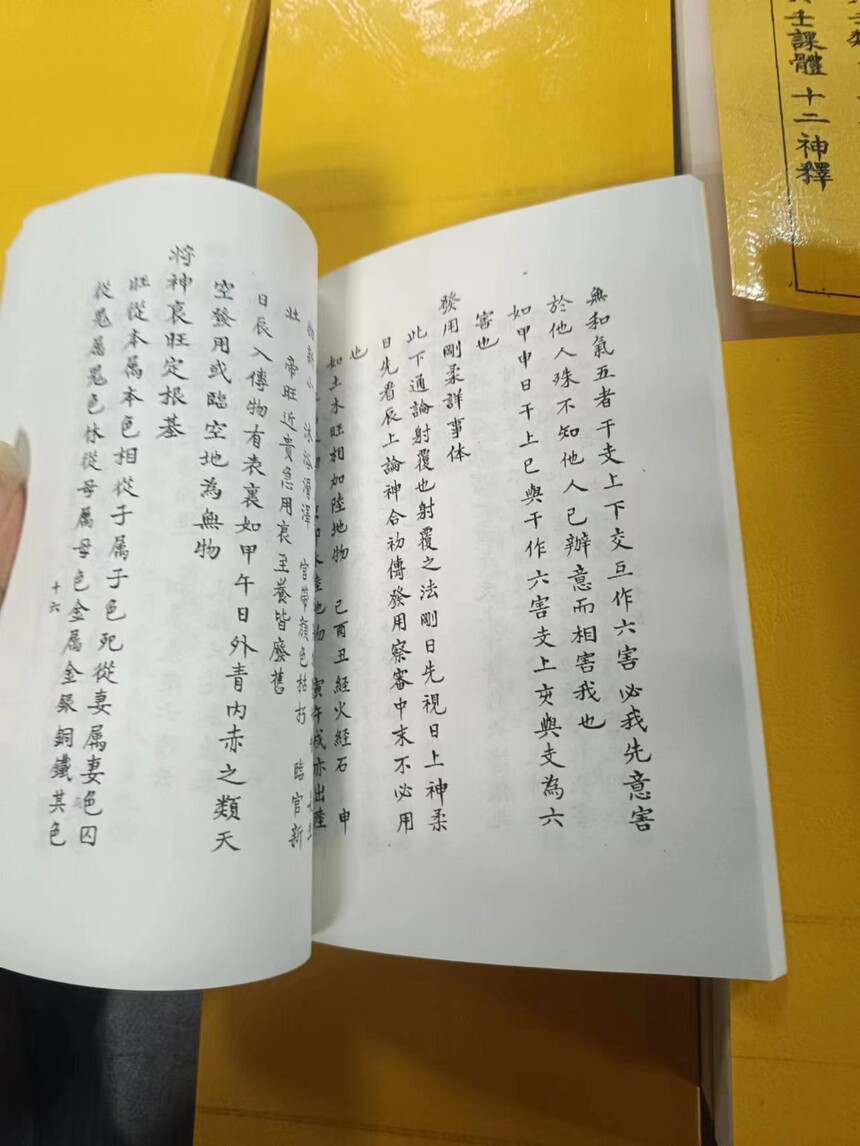 無和氣五者干支上下交互作六害必我先意害
於他人殊不知他人已辦意而相害我也
如甲申日干上巳與干作六害支上亥與支為六
害也
發用剛柔詳事体
此下通論射覆也射覆之法剛日先視日上神柔
日先看辰上論神合初傳發用察審中末不必用
也
如土木旺相加陸地物 己酉丑經火經石 申
寅午戌亦出陸
沐浴滑澤 官帶顏色枯朽 臨官新
壯 帝旺近貴急用衰至養皆廢舊
日辰入傳物有表裏如甲午日外青內赤之類天
空發用或臨空地為無物
將神衰旺定根基
旺從本属本色相從子属子色死從妻属妻色囚
從鬼属鬼色休從母属母色金属金銀銅鐵其色
十六
壬課體 十二神釋